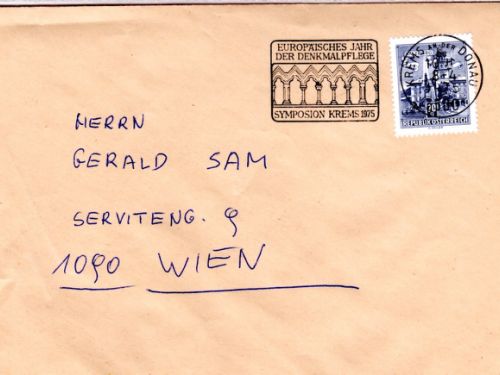 EUROPÄISCHES JAHR
DER DENKMALPFLEGE
SYMPOSION KREMS 1975
KREMS AN DER DONAU
REPUBLIK ÖSTERREICH
HERRN
GERALD SAM
SERVITENG. 9
1090 WIEN